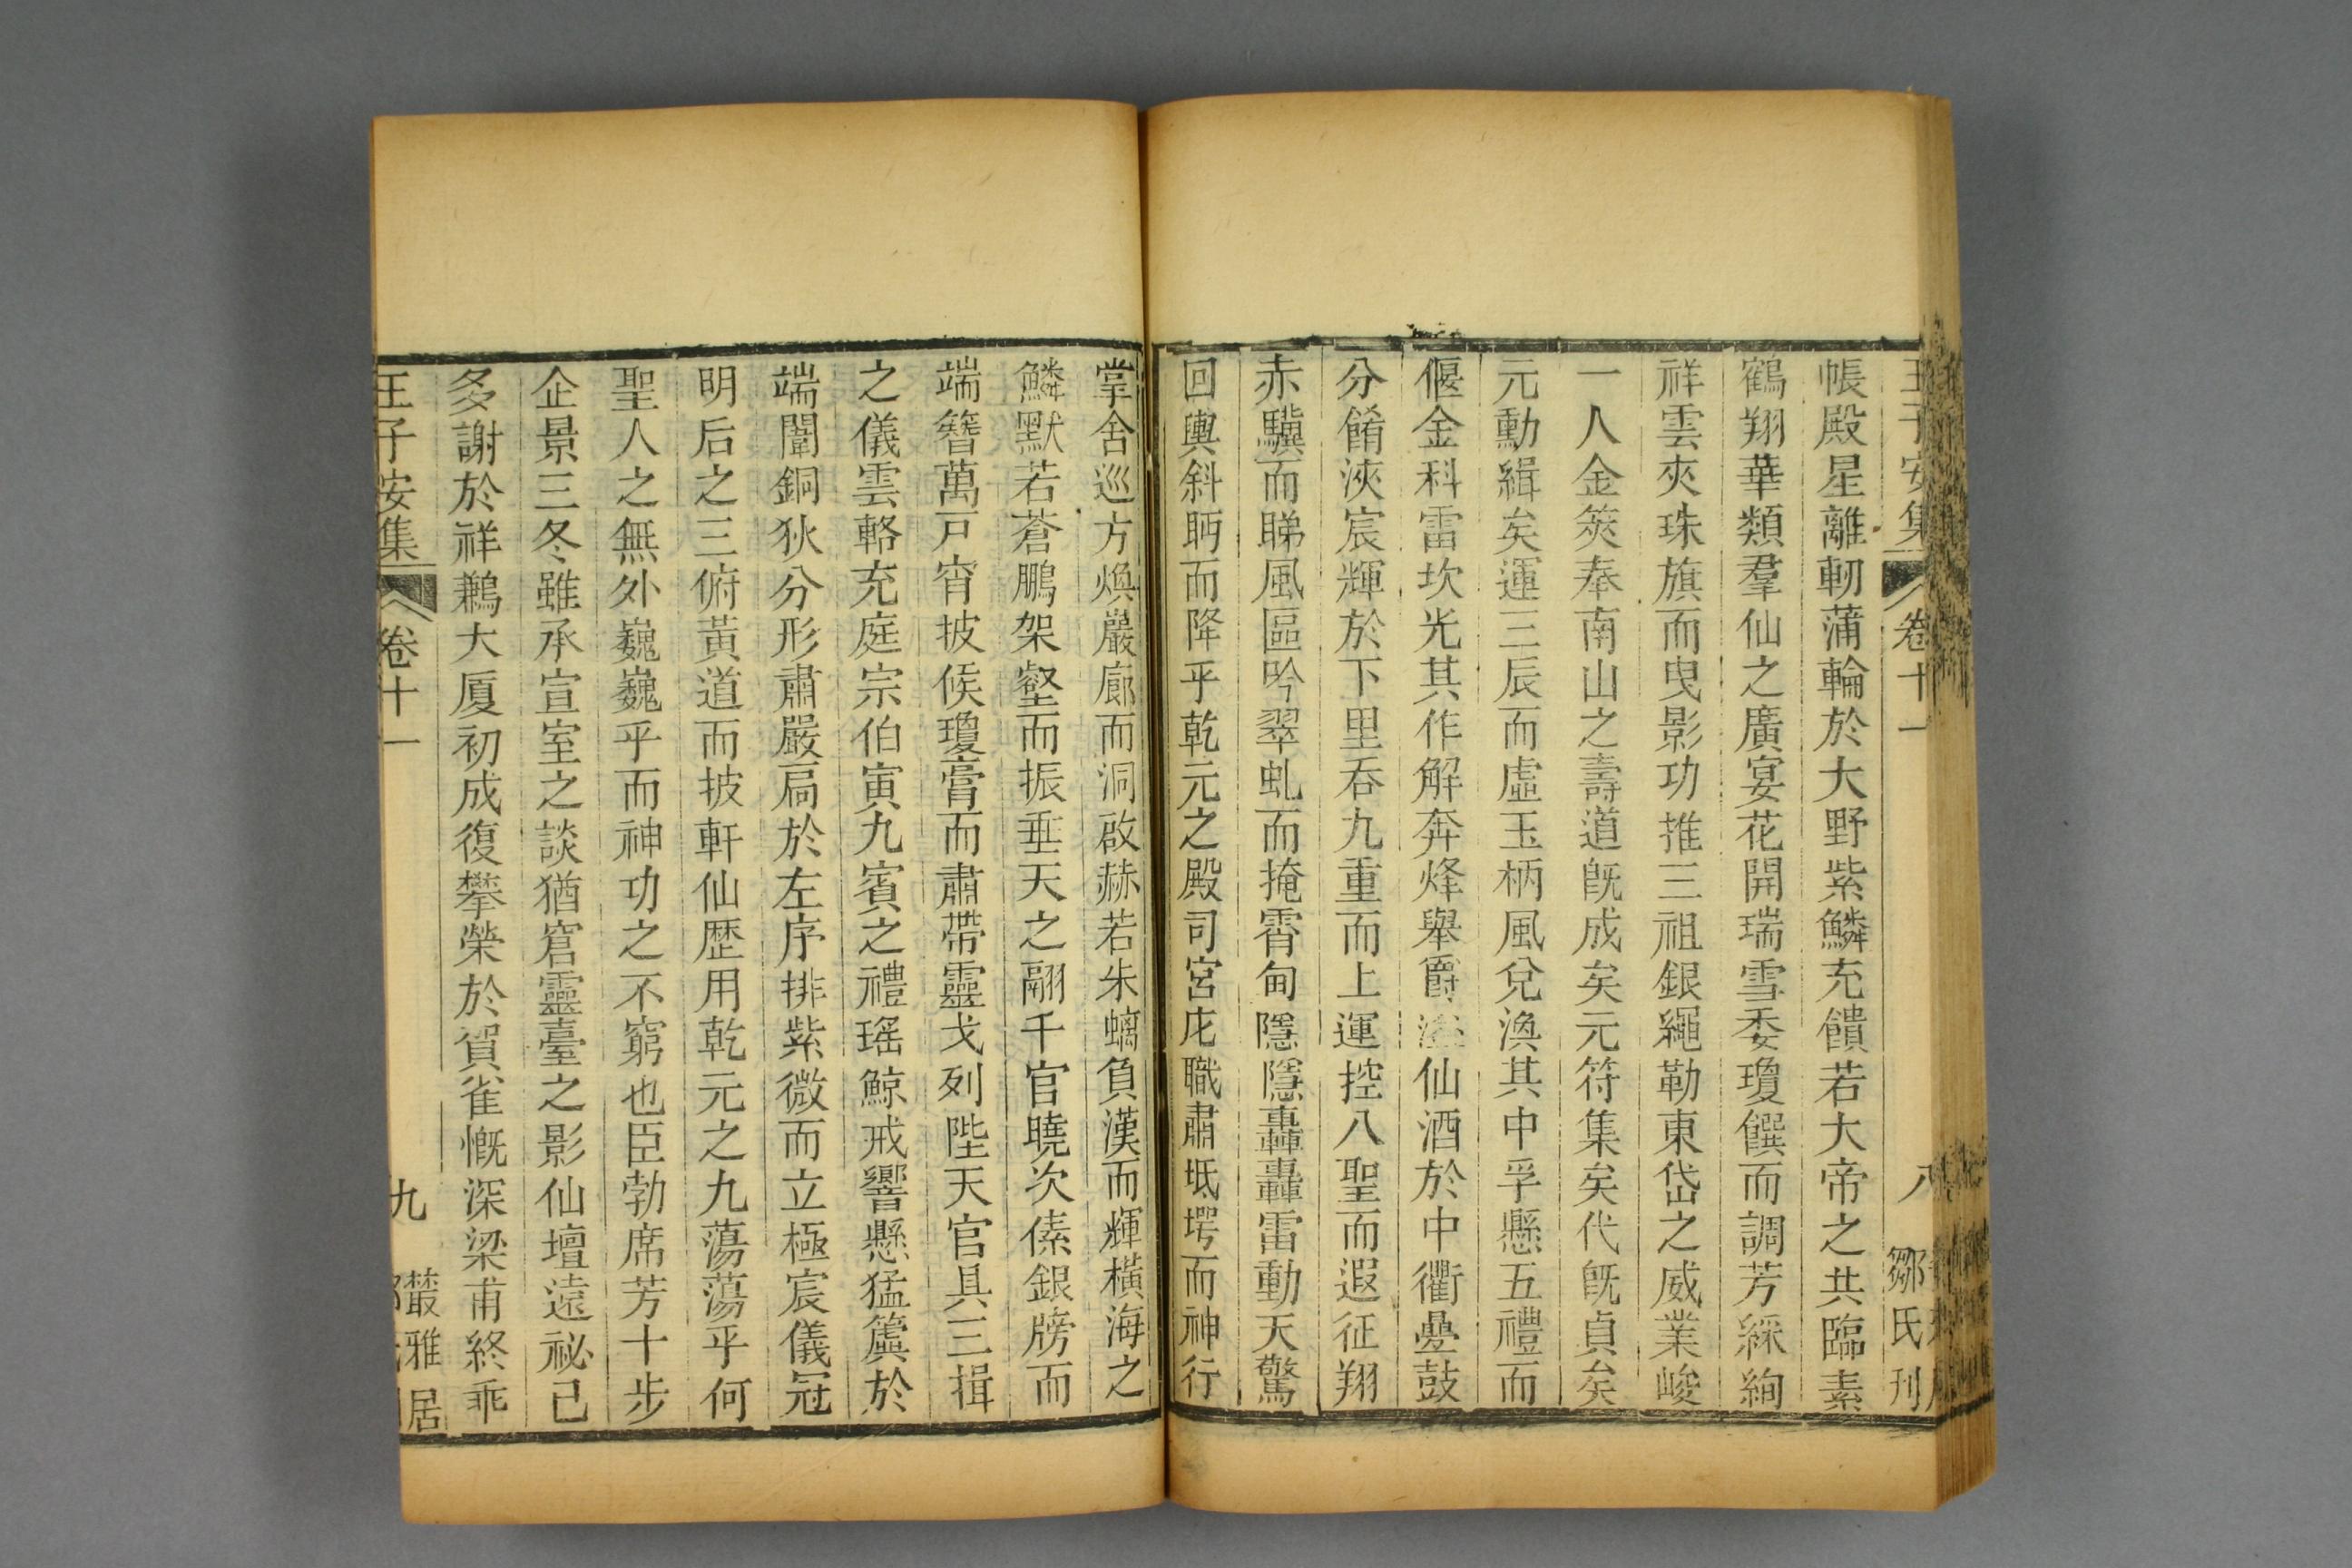 王子安集 卷十一 八 鄒氏刊
帳殿星離軔蒲輪於大野紫鱗充饋若大帝之共臨素
鶴翔華類羣仙之廣宴花開瑞雪委瓊饌而調芳綵絢
祥雲夾珠旗而曳影功推三祖銀繩勒東岱之威業峻
一人金筴奉南山之壽道旣成矣元符集矣代旣貞矣
元勳緝矣運三辰而虛玉柄風兌渙其中孚懸五禮而
偃金科雷坎光其作解奔烽舉爵溢仙酒於中衢疊鼓
分餚浹宸輝於下里吞九重而上運控八聖而遐征翔
赤驥而睇風區吟翠虬而掩霄甸隱隱轟轟雷動天驚
回輿斜眄而降乎乾元之殿司宮庀職肅坻堮而神行
掌舍巡方煥巖廊而洞啟赫若朱螭負漢而輝橫海之
鱗默若蒼鵬架壑而振垂天之翮千官曉次傃銀牓而
端簪萬戸宵披候瓊膏而肅帶靈戈列陛天官具三揖
之儀雲輅充庭宗伯寅九賓之禮瑤鯨戒響懸猛簴於
端闈銅狄分形肅嚴扃於左序排紫微而立極宸儀冠
明后之三俯黃道而披軒仙歴用乾元之九蕩蕩乎何
聖人之無外巍巍乎而神功之不窮也臣勃席芳十步
企景三冬雖承宣室之談猶窘靈臺之影仙壇遠祕已
多謝於祥鶼大厦初成復攀榮於賀雀慨深梁甫終乖
王子安集 卷十一 九 叢雅居